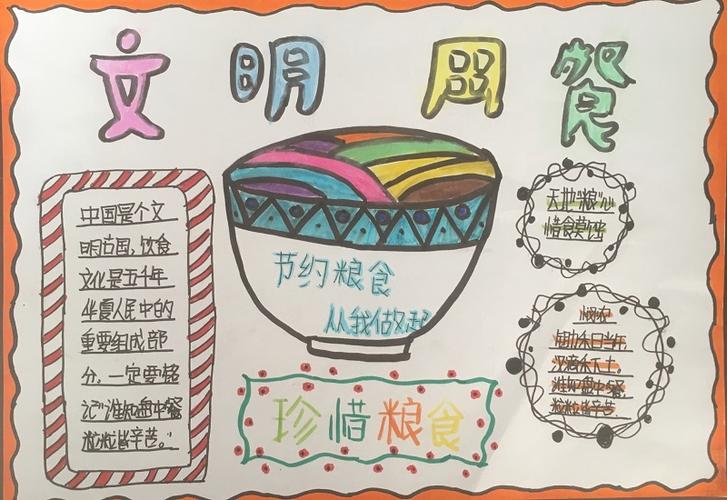 文明用餐
中国是个文
明古国,饮食
文化是五千年
华夏人民中的
重要组成部
分,一定要铭
记"谁知盘中餐
粒粒皆辛苦。"
节约粮食
从我做起
天地"粮"心
惜食莫蚀
悯农
锄禾日当午
汗滴禾下土。
谁知盘中餐
粒粒皆辛苦。
珍惜粮食